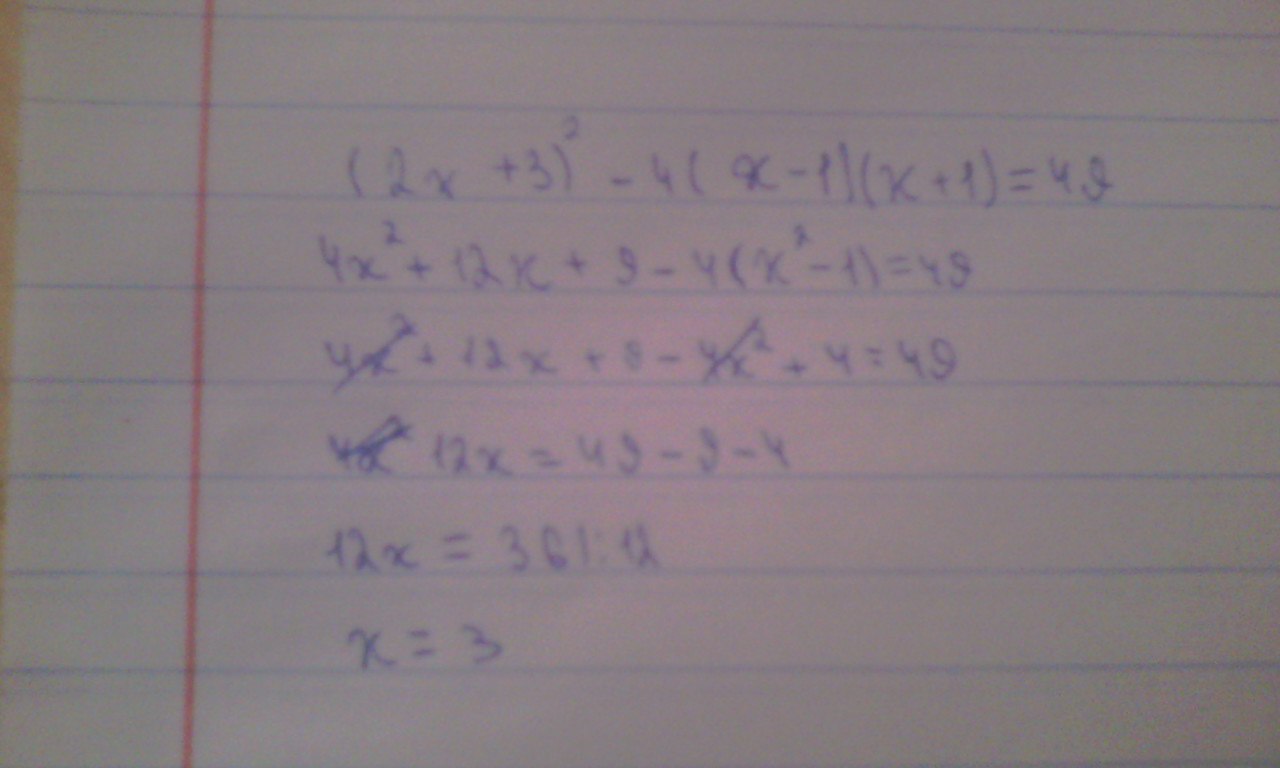 (2x + 3)² - 4(x - 1)(x + 1) = 49
4x² + 12x + 9 - 4(x² - 1) = 49
4x² + 12x + 9 - 4x² + 4 = 49
12x = 49 - 9 - 4
12x = 36 | : 12
x = 3